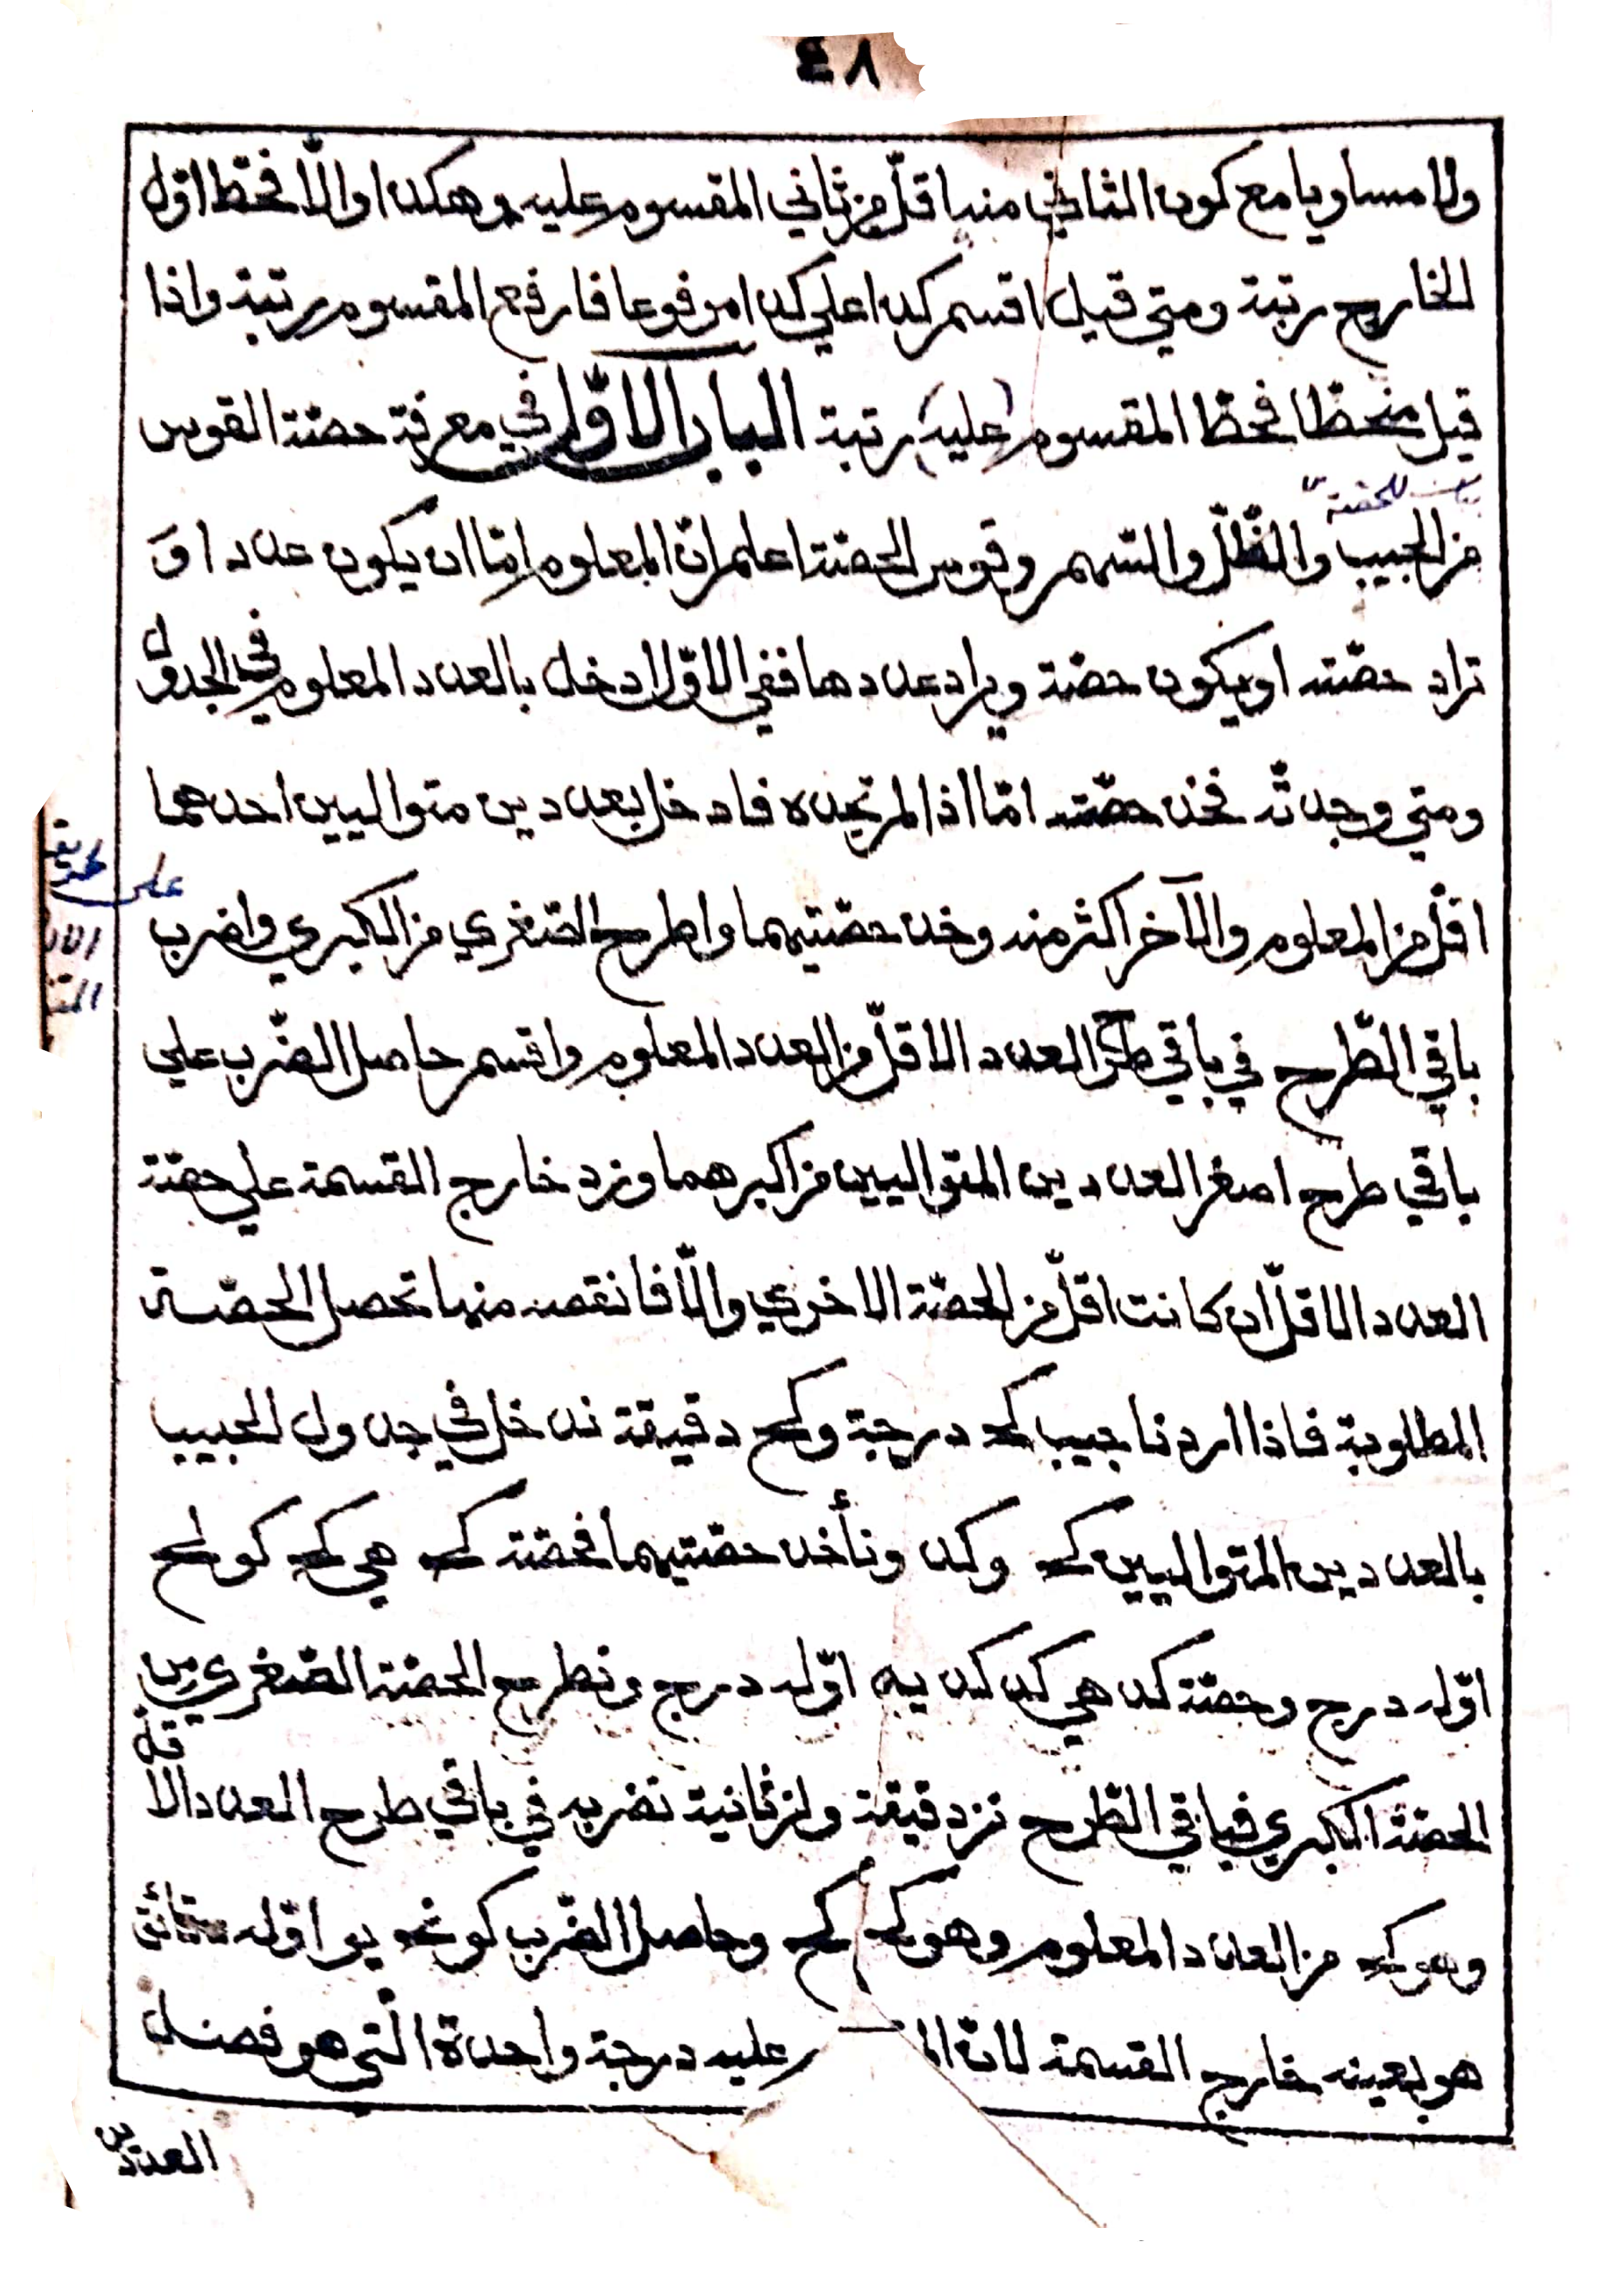 ٤٨
ولا مساويا مع كون الثاني منه اقلّ من ثاني المقسوم عليه وهكذا والّا فحُطّ اوّل
الخارج رتبة ومتي قيل اقسم كذا علي كذا مرفوعا فارفع المقسوم رتبة واذا
قيل منحطّا فحُطّ المقسوم (عليه) رتبة الباب الاوّل في معرفة حصّة القوس
للحصة
من الجيب والظّلّ والسّهم وقوس الحصّة اعلم انّ المعلوم امّا ان يكون عددا وَ
تراد حصّته او يكون حصّة ويراد عددها ففي الاوّل ادخل بالعدد المعلوم في الجدول
ومتي وجدتّه فخذ حصّته امّا اذا لم تجده فادخل بعددين متواليين احدهما
على طريقة
اقلّ من المعلوم والآخر اكثر منه وخذ حصّتيهما واطرح الصّغري من الكبري واضرب
باقي الطّرح في باقي طرح العدد الاقلّ من العدد المعلوم واقسم حاصل الضّرب علي
باقي طرح اصغر العددين المتواليين من اكبرهما وزد خارج القسمة علي حصّة
العدد الاقلّ ان كانت اقلّ من الحصّة الاخري والّا فانقصه منها تحصل الحصّة
المطلوبة فاذا اردنا جيب كج درجة وكح دقيقة ندخل في جدول الجيب
بالعددين المتواليين كج وكد ونأخذ حصّتيهما فحصّة كج هي كج كو لح
اوّله درج وحصّة كد هي كد كد يه اوّله درج ونطرح الحصّة الصّغري من
الحصّة الكبري فباقي الطّرح نز دقيقة ولز ثانية نضربه في باقي طرح العدد الاقلّ
وهو كج من العدد المعلوم وهو كج كح وحاصل الضّرب كو نج يو اوّله دقائق
هو بعينه خارج القسمة لانّ الم عليه درجة واحدة الّتي هو فضل
العددين